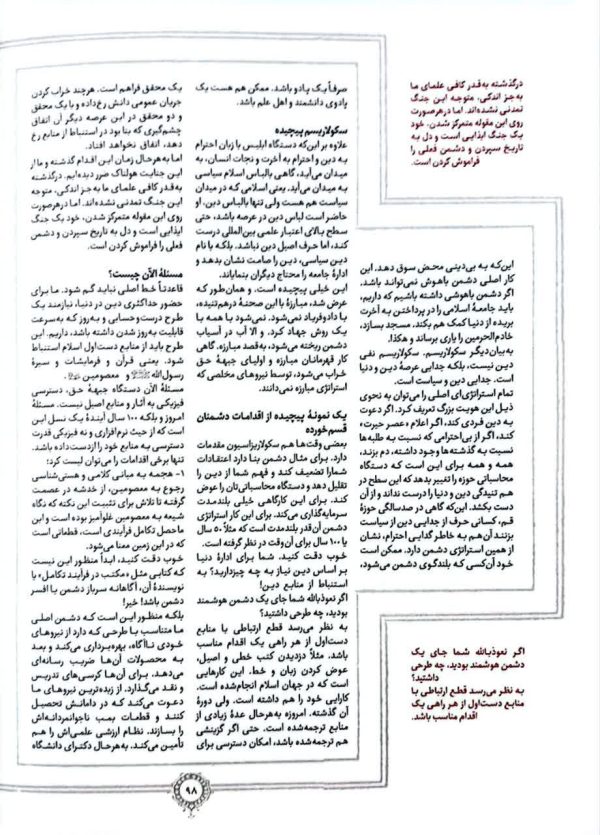 درگذشته به‌قدر کافی علمای ما
به‌جز اندکی، متوجه این جنگ
تمدنی نشده‌اند. اما درهرصورت
روی این مقوله متمرکز شدن، خود
یک جنگ ایذایی است و دل به
تاریخ سپردن و دشمن فعلی را
فراموش کردن است.
این‌که به بی‌دینی محض سوق دهد. این
کار اصلی دشمن باهوش نمی‌تواند باشد.
اگر دشمن باهوشی داشته باشیم که داریم،
باید جامعهٔ اسلامی را در پرداختن به آخرت
بریده از دنیا کمک هم بکند. مسجد بسازد،
خادم‌الحرمین را یاری برساند و هکذا.
به‌بیان‌دیگر سکولاریسم. سکولاریسم نفی
دین نیست، بلکه جدایی عرصهٔ دین و دنیا
است. جدایی دین و سیاست است.
تمام استراتژی‌ای اصلی را می‌توان به نحوی
ذیل این هویت بزرگ تعریف کرد. اگر دعوت
به دین فردی کند، اگر اعلام «عصر حیرت»
کند، اگر از بی‌احترامی که نسبت به طلبه‌ها
نسبت به گذشته‌ها وجود داشته، دم بزند،
همه و همه برای این است که دستگاه
محاسباتی حوزه را تغییر بدهد که این سطح در
هم تنیدگی دین و دنیا را درست نداند و از آن
دست بکشد. این‌که گاهی در صدسالگی حوزهٔ
قم، کسانی حرف از جدایی دین از سیاست
بزنند آن هم به خاطر گدایی احترام، نشان
از همین استراتژی دشمن دارد. ممکن است
خود آن‌کسی که بلندگوی دشمن می‌شود،
اگر نعوذبالله شما جای یک
دشمن هوشمند بودید، چه طرحی
داشتید؟
به نظر می‌رسد قطع ارتباطی با
منابع دست‌اول از هر راهی یک
اقدام مناسب باشد.
صرفاً یک پادو باشد. ممکن هم هست یک
پادوی دانشمند و اهل علم باشد.
سکولاریسم پیچیده
علاوه بر این‌که دستگاه ابلیس با زبان احترام
به دین و احترام به آخرت و نجات انسان، به
میدان می‌آید، گاهی بالباس اسلام سیاسی
به میدان می‌آید. یعنی اسلامی که در میدان
سیاست هم هست ولی تنها بالباس دین. او
حاضر است لباس دین در عرصه باشد، حتی
سطح بالای اعتبار علمی بین‌المللی درست
کند، اما حرف اصیل دین نباشد. بلکه با نام
دین سیاسی، دین را صامت نشان بدهد و
ادارهٔ جامعه را محتاج دیگران بنمایاند.
این خیلی پیچیده است. و همان‌طور که
عرض شد، مبارزهٔ با این صحنهٔ درهم‌تنیده،
با دادوفریاد نمی‌شود. نمی‌شود با همه با
یک روش جهاد کرد. و الا آب در آسیاب
دشمن ریخته می‌شود، به‌قصد مبارزه. گاهی
کار قهرمانان مبارزه و اولیای جبههٔ حق
خراب می‌شود، توسط نیروهای مخلصی که
استراتژی مبارزه نمی‌دانند.
یک نمونهٔ پیچیده از اقدامات دشمنان
قسم‌خورده
بعضی وقت‌ها هم سکولاریزاسیون مقدمات
دارد. برای مثال دشمن بنا دارد اعتقادات
شمارا تضعیف کند و فهم شما از دین را
تقلیل دهد و دستگاه محاسباتی‌تان را عوض
کند. برای این کارگاهی خیلی بلندمدت
سرمایه‌گذاری می‌کند. برای این کار استراتژی
دشمن آن‌قدر بلندمدت است که مثلاً ۵۰ سال
یا ۱۰۰ سال برای آن‌وقت در نظر گرفته است.
خوب دقت کنید. شما برای ادارهٔ دنیا
بر اساس دین نیاز به چه چیزدارید؟ به
استنباط از منابع دین!
اگر نعوذبالله شما جای یک دشمن هوشمند
بودید، چه طرحی داشتید؟
به نظر می‌رسد قطع ارتباطی با منابع
دست‌اول از هر راهی یک اقدام مناسب
باشد. مثلاً دزدیدن کتب خطی و اصیل،
عوض کردن زبان و خط. این کارهایی
است که در جهان اسلام انجام‌شده است.
کارایی خود را هم داشته است. ولی دورهٔ
آن گذشته. امروزه به‌هرحال عدهٔ زیادی از
منابع ترجمه‌شده است. حتی اگر گزینشی
هم ترجمه‌شده باشد، امکان دسترسی برای
یک محقق فراهم است. هرچند خراب کردن
جریان عمومی دانش رخ‌داده و با یک محقق
و دو محقق در این عرصه دیگر آن اتفاق
چشم‌گیری که بنا بود در استنباط از منابع رخ
دهد، اتفاق نخواهد افتاد.
اما به‌هرحال زمان این اقدام گذشته و ما از
این جنایت هولناک ضرر دیده‌ایم. درگذشته
به‌قدر کافی علمای ما به‌جز اندکی، متوجه
این جنگ تمدنی نشده‌اند. اما درهرصورت
روی این مقوله متمرکز شدن، خود یک جنگ
ایذایی است و دل به تاریخ سپردن و دشمن
فعلی را فراموش کردن است.
مسئلهٔ الآن چیست؟
قاعدتاً خط اصلی نباید گم شود. ما برای
حضور حداکثری دین در دنیا، نیازمند یک
طرح درست‌وحسابی و به‌روز که به‌سرعت
قابلیت به‌روز شدن داشته باشد، داریم. این
طرح باید از منابع دست‌اول اسلام استنباط
شود. یعنی قرآن و فرمایشات و سیرهٔ
رسول‌الله و معصومین
مسئلهٔ الآن دستگاه جبههٔ حق، دسترسی
فیزیکی به آثار و منابع اصیل نیست. مسئلهٔ
امروز و بلکه ۱۰۰ سال آیندهٔ یک نسل این
است که از حیث نرم‌افزاری و نه فیزیکی قدرت
دسترسی به منابع خود را ازدست‌داده باشد.
تنها برخی اقدامات را می‌توان لیست کرد؛
۱- هجمه به مبانی کلامی و هستی‌شناسی
رجوع به معصومین. از خدشه در عصمت
گرفته تا تلاش برای تثبیت این نکته که نگاه
شیعه به معصومین غلوآمیز بوده است و این
ماحصل تکامل فرآیندی است، قطعاتی است
که در این زمین معنا می‌شود.
خوب دقت کنید، ابداً منظور این نیست
که کتابی مثل «مکتب در فرآیند تکامل» یا
نویسندهٔ آن، آگاهانه سرباز دشمن یا افسر
دشمن باشد! خیر!
بلکه منظور این است که دشمن اصلی
ما متناسب با طرحی که دارد از نیروهای
خودی ناآگاه، بهره‌برداری می‌کند و بعد
به محصولات آن‌ها ضریب رسانه‌ای
می‌دهد. برای آن‌ها کرسی‌های تدریس
و نقد می‌گذارد. از زبده‌ترین نیروهای ما
دعوت می‌کند که در دامانش تحصیل
کنند و قطعات بمب ناجوانمردانه‌اش
را بسازند. نظام ارزشی علمی‌اش را هم
تأمین می‌کند. به‌هرحال دکترای دانشگاه
۹۸